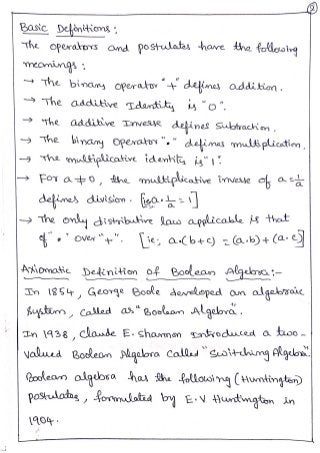 2
Basic Definitions :
The operators and postulates have the following
meanings :
→ The binary operator "+" defines addition.
→ The additive Identity is "0".
→ The additive Inverse defines Subtraction.
→ The binary Operator "•" defines multiplication.
→ The multiplicative identity is "1".
→ For a ≠ 0, the multiplicative inverse of a = 1/a
defines division. [ie a . 1/a = 1]
→ The only distributive law applicable is that
of "•" over "+". [ie, a.(b+c) = (a.b)+(a.c)]
Axiomatic Definition of Boolean Algebra :-
In 1854, George Boole developed an algebraic
System, called as "Boolean Algebra".
In 1938, Claude E. Shannon Introduced a two-
valued Boolean Algebra called "Switching Algebra".
Boolean algebra has the following (Huntington)
postulates, formulated by E.V Huntington in
1904.